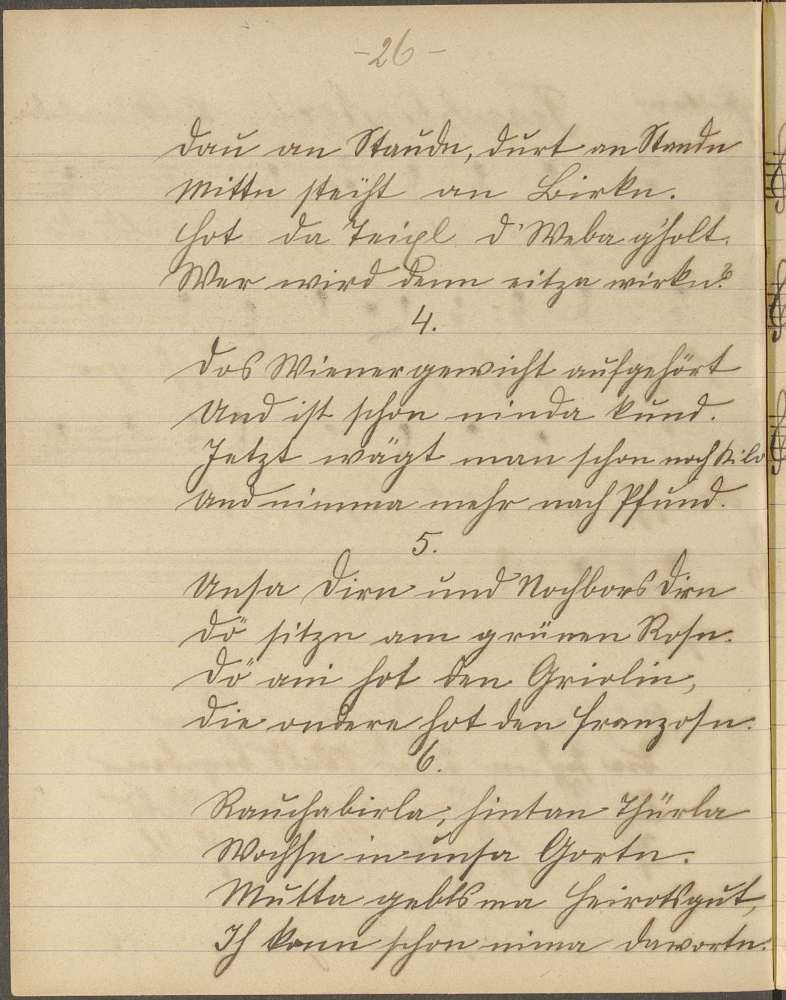 -26-
Dau an Staudn, durt an Staudn
Mittn steiht an Birkn.
Hot da Teixl d'Weba g'holt.
Wer wird denn eitza wirkn?
4.
Dos Wienergewicht aufgehört
Und ist schon ninda kund.
Jetzt wägt man schon noch Kilo
Und nimma mehr nach Pfund.
5.
Unsa Dirn und Nochbors Dirn
Dö sitzn am grünen Rosn.
Dö ani hot den
Die ondere hot den Franzosn.
6.
Rauchabirla, hintan Thürla
Wochsn in unsa Gortn.
Mutta gebts ma Heirotsgut,
Ih konn schon nima dawortn.